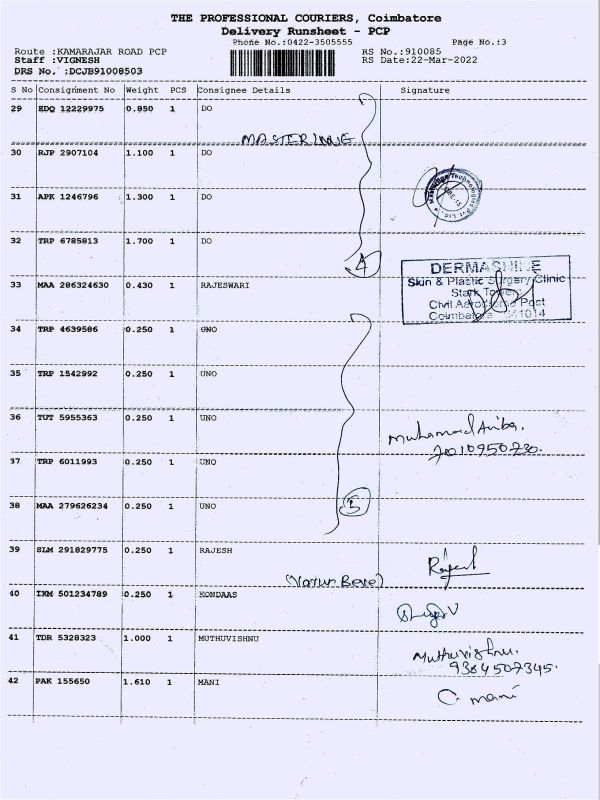 THE PROFESSIONAL COURIERS, Coimbatore
Delivery Runsheet - PCP
Phone No.:0422-3505555 Page No.:3
Route :KAMARAJAR ROAD PCP RS No.:910085
Staff :VIGNESH RS Date:22-Mar-2022
DRS No. :DCJB91008503
S No Consignment No Weight PCS Consignee Details Signature
29 EDQ 12229975 0.850 1 DO
30 RJP 2907104 1.100 1 DO
31 APK 1246796 1.300 1 DO
32 TRP 6785813 1.700 1 DO
4
DERMASHINE
Skin & Plastic Surgery Clinic
Civil Aerodrome Post
Coimbatore 641014
33 MAA 286324630 0.430 1 RAJESWARI
34 TRP 4639586 0.250 1 UNO
35 TRP 1542992 0.250 1 UNO
36 TUT 5955363 0.250 1 UNO
Muhammad
7010950730.
37 TRP 6011993 0.250 1 UNO
38 MAA 279626234 0.250 1 UNO
5
39 SLM 291829775 0.250 1 RAJESH
40 IXM 501234789 0.250 1 KONDAAS
41 TDR 5328323 1.000 1 MUTHUVISHNU
Muthuvishnu.
9384507345.
42 PAK 155650 1.610 1 MANI
C. mani